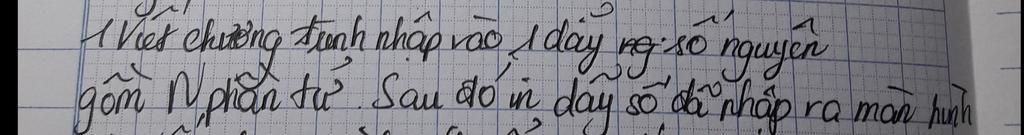 1 Viết chương trình nhập vào 1 dãy số nguyên
gồm N phần tử. Sau đó in dãy số đã nhập ra màn hình